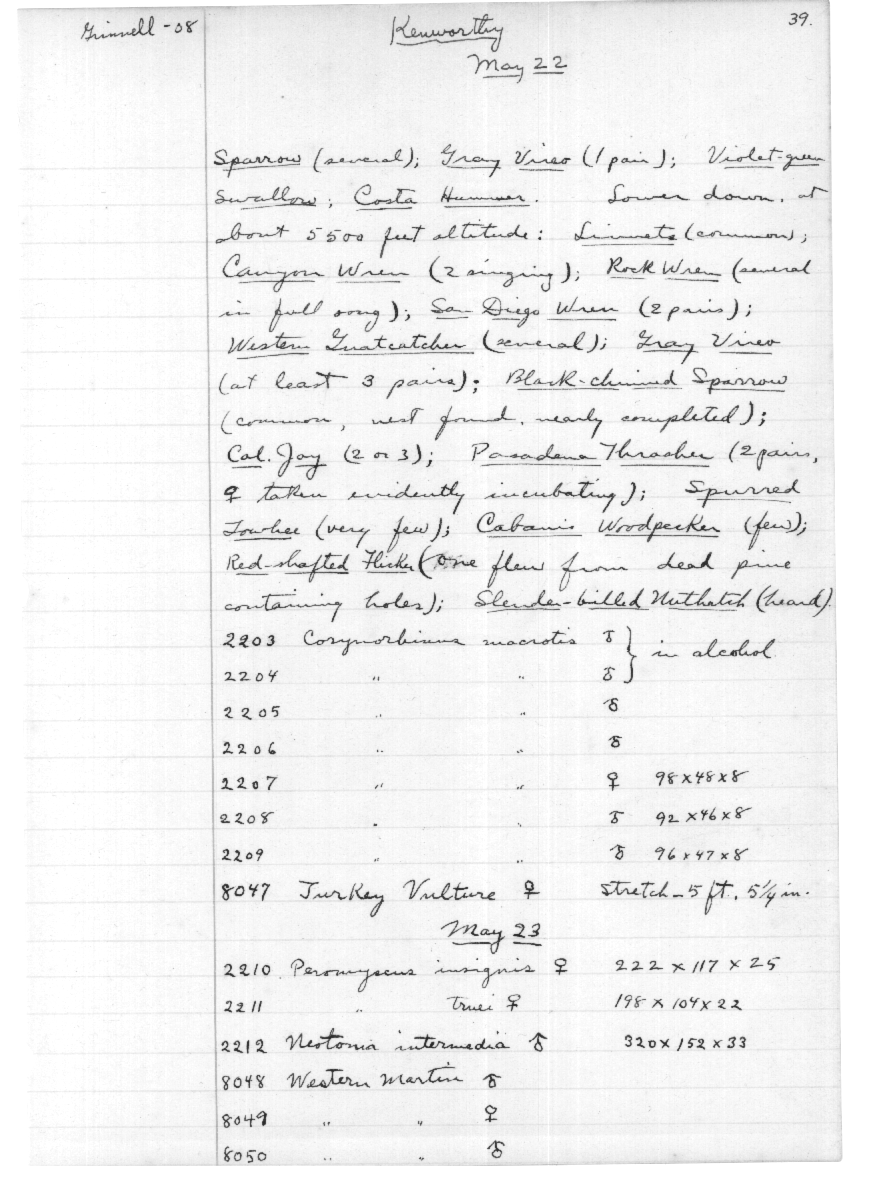 Grinnell - 08
Kenworthy
39.
May 22
Sparrow (several); Gray Vireo (1 pair); Violet-green
Swallow; Costa Hummer. Lower down, at
about 5500 feet altitude: Linnets (common);
Canyon Wren (2 singing); Rock Wren (several
in full song); San Diego Wren (2 pairs);
Western Gnatcatcher (several); Gray Vireo
(at least 3 pairs); Black-chinned Sparrow
(common, nest found, nearly completed);
Cal. Jay (2 or 3); Pasadena Thrasher (2 pairs,
♀ taken evidently incubating); Spurred
Towhee (very few); Cabanis Woodpecker (few);
Red-shafted Flicker (one flew from dead pine
containing holes); Slender-billed Nuthatch (heard).
2203 Corynorhinus macrotis ♂ } in alcohol
2204 " " ♂
2205 " " ♂
2206 " " ♂
2207 " " ♀ 98 x 48 x 8
2208 " " ♂ 92 x 46 x 8
2209 " " ♂ 96 x 47 x 8
8047 Turkey Vulture ♀ stretch - 5 ft. 5 1/4 in.
May 23
2210 Peromyscus insignis ♀ 222 x 117 x 25
2211 " truei ♀ 198 x 104 x 22
2212 Neotoma intermedia ♂ 320 x 152 x 33
8048 Western Martin ♂
8049 " " ♀
8050 " " ♂